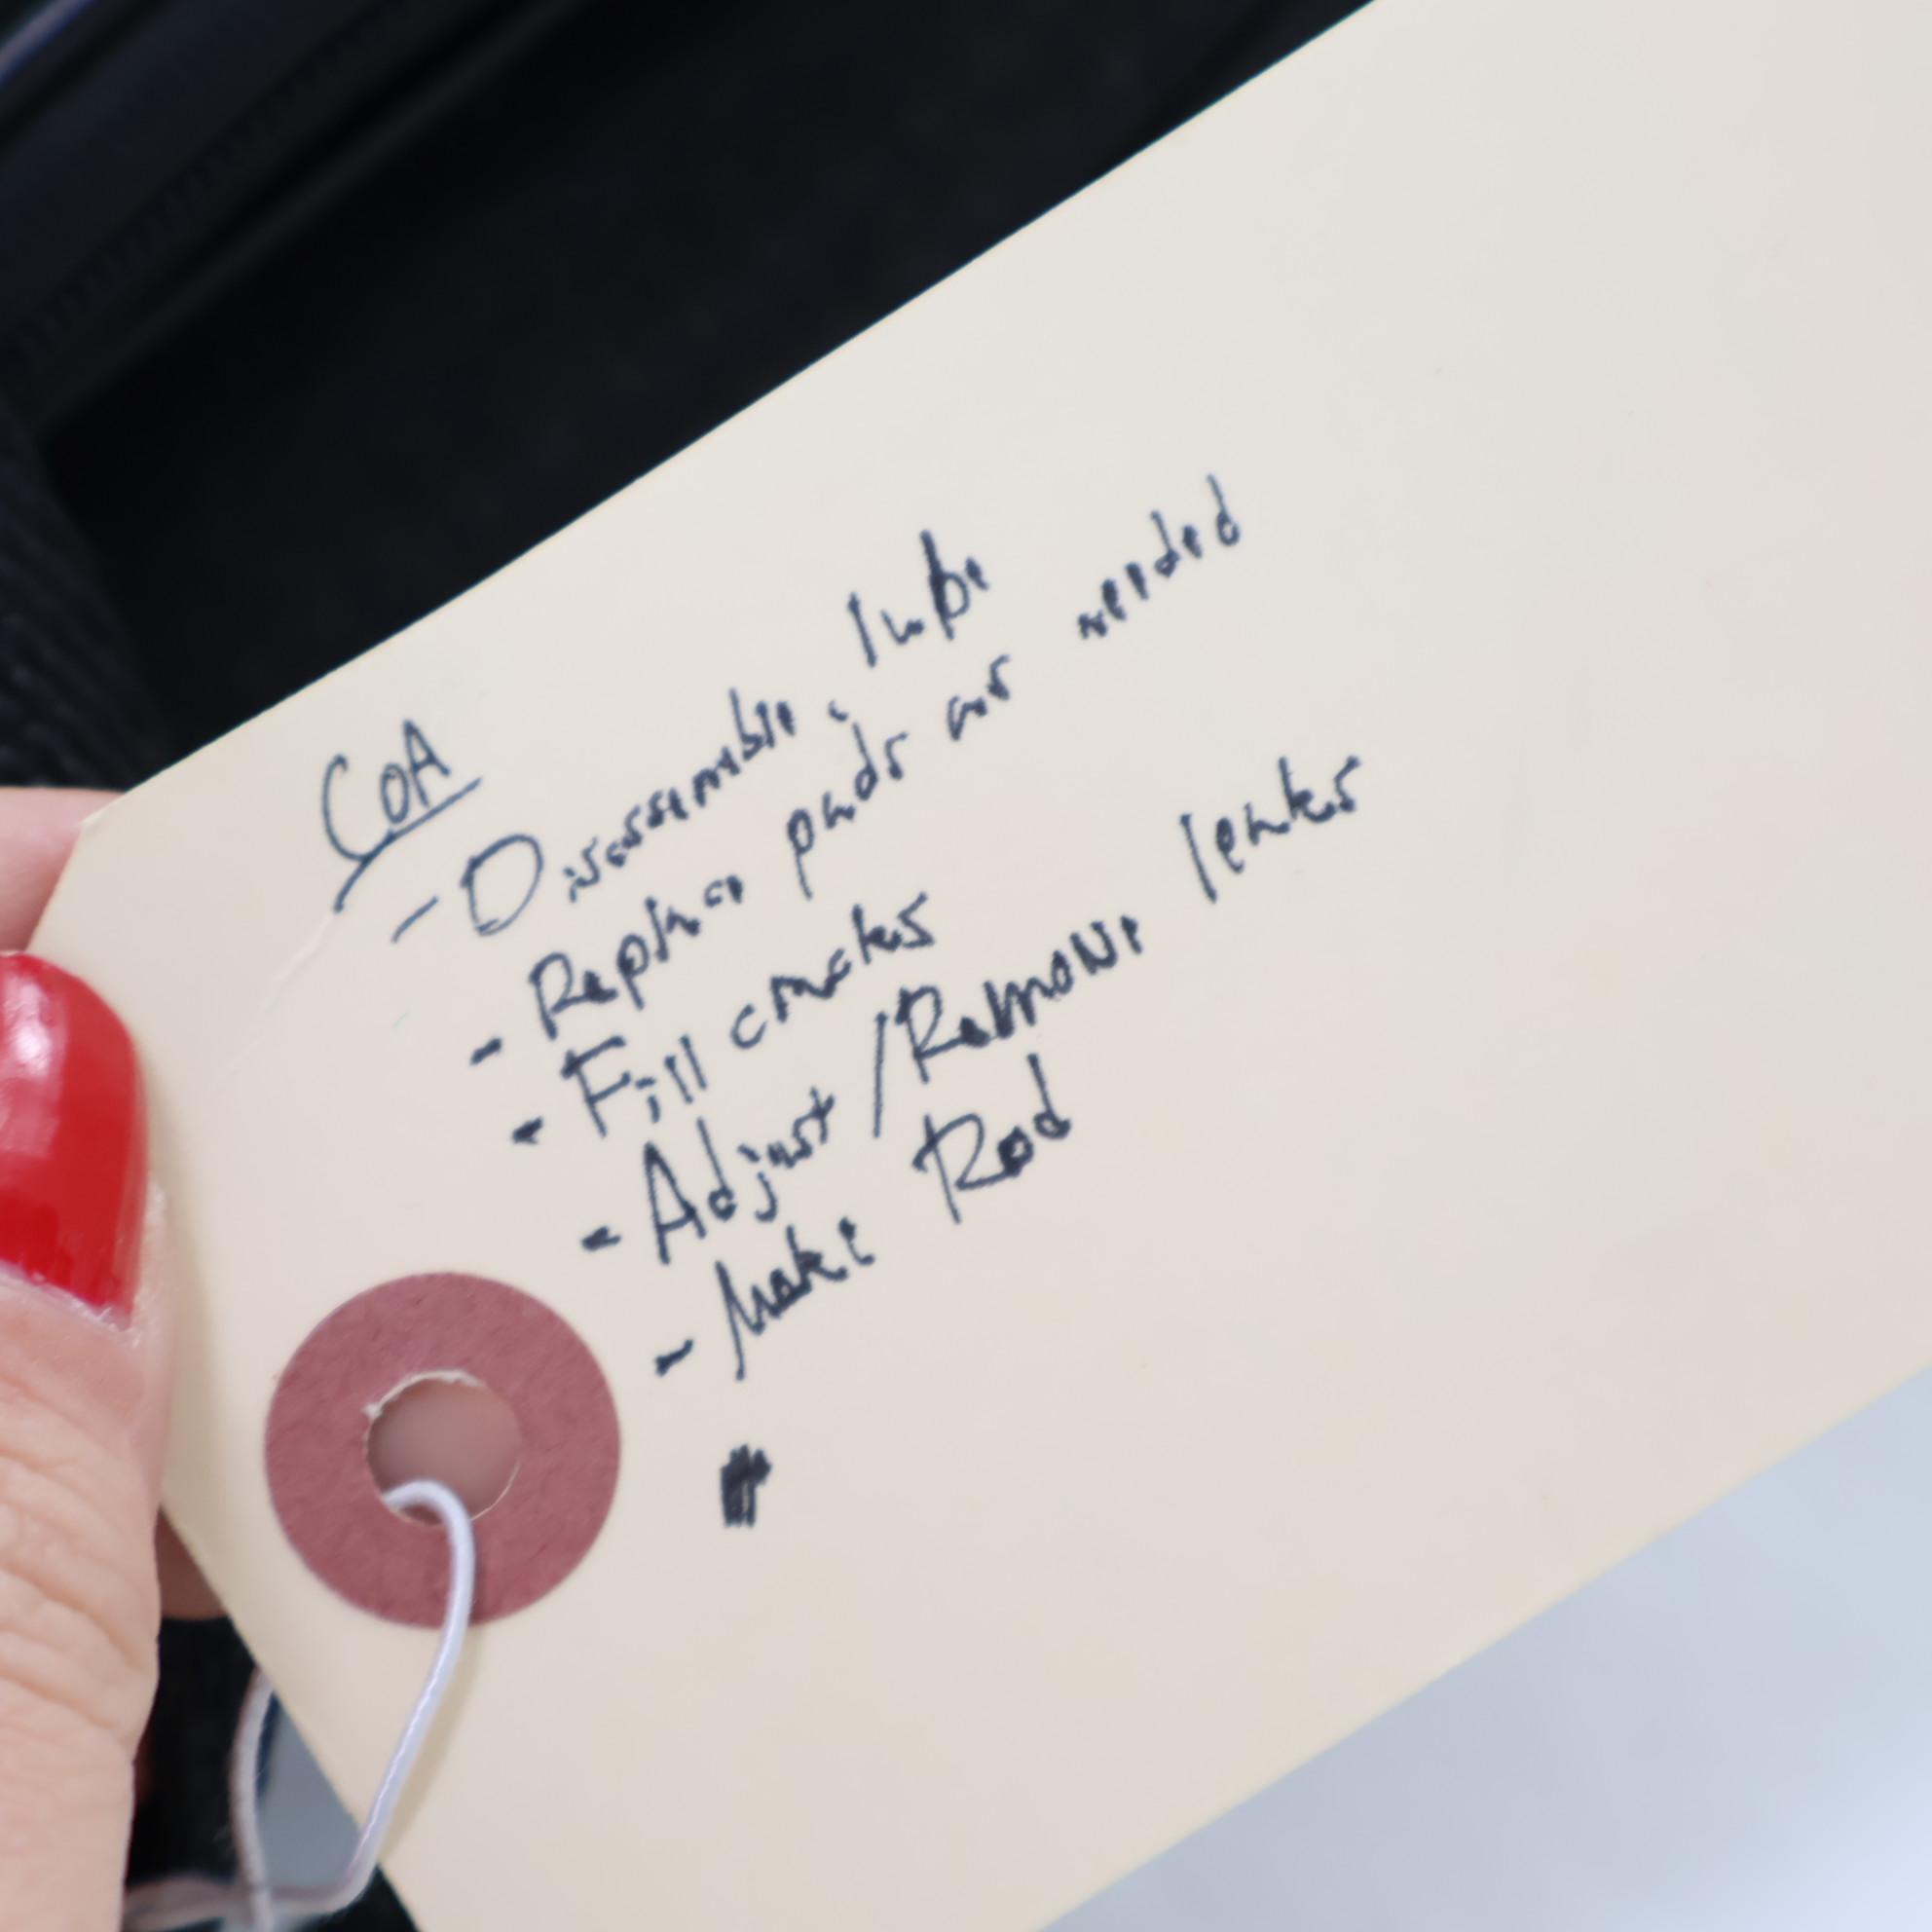 COA
- Dissasemble; lube
- Replace pads as needed
- Fill cracks
- Adjust/Remove leaks
- Make Rod